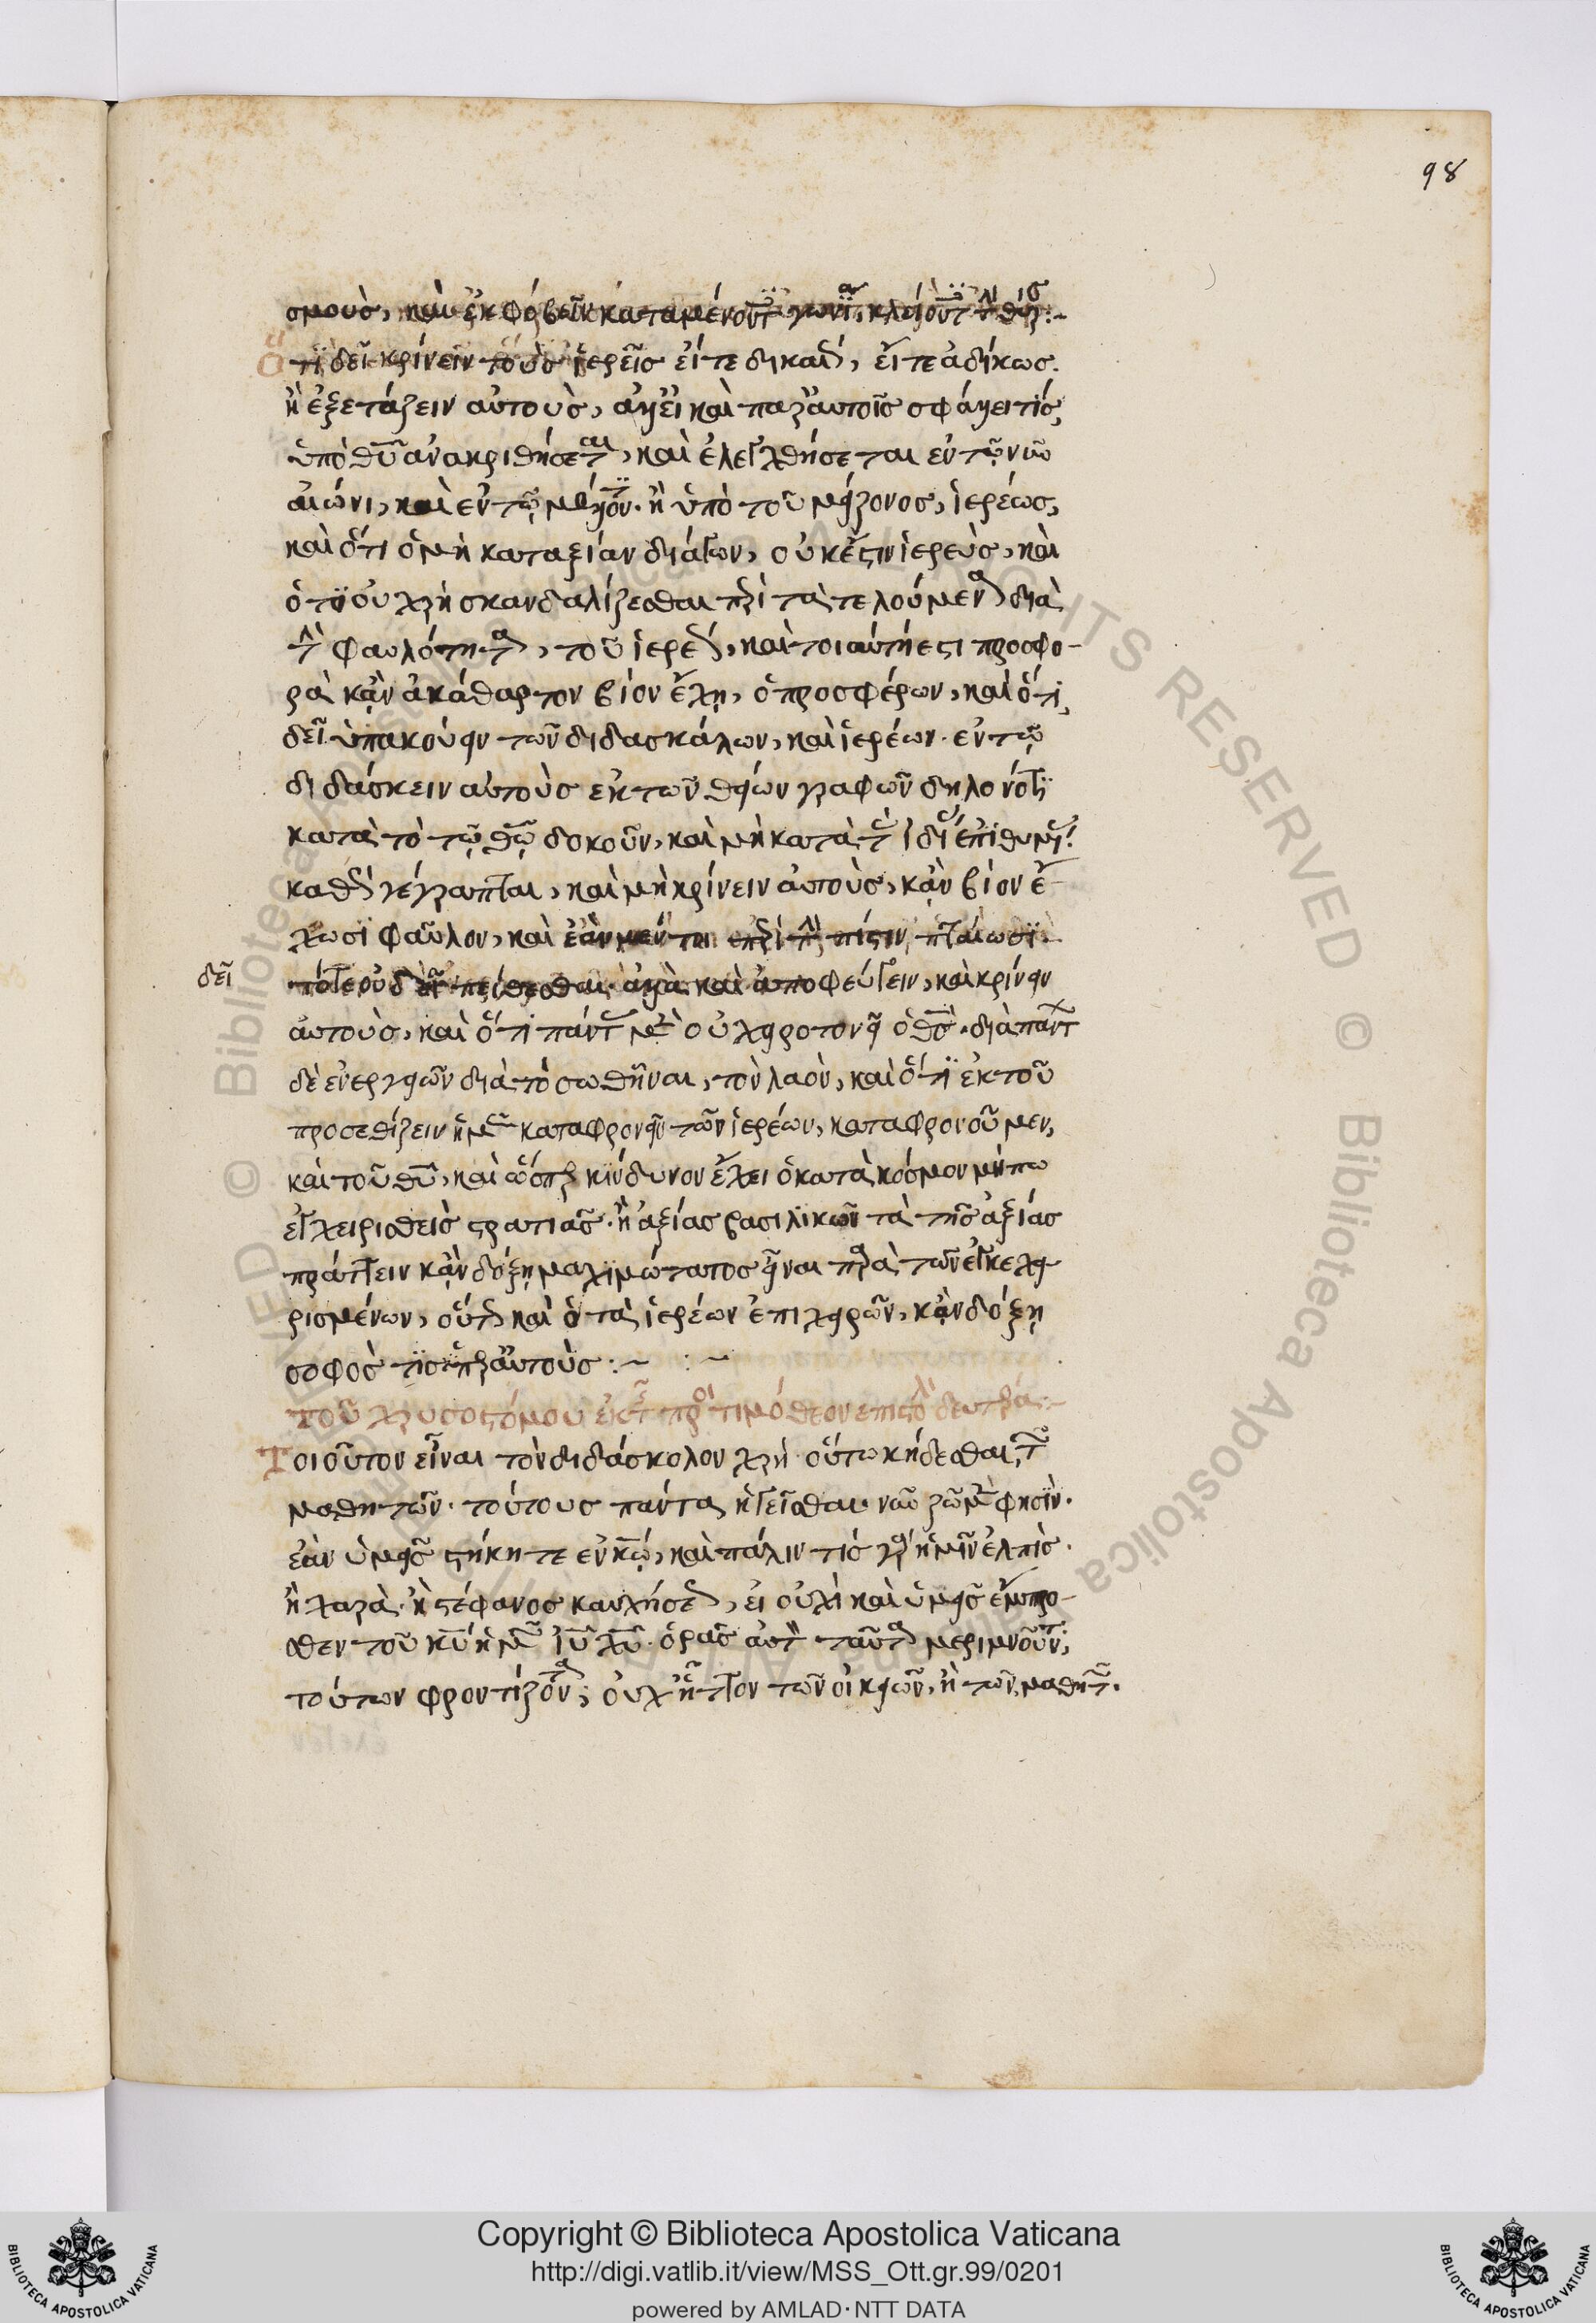 98
σμοὺς, καὶ ἐκφόβει καταμένοντ
Ὅτι δεῖ κρίνειν τοὺς ἱερεῖς εἴτε δικαί, εἴτε ἀδίκως.
ἢ ἐξετάζειν αὐτοὺς, ἀλλ εἰ καὶ παρ αὐτοῖς σφάλλει τίς,
ὑπὸ θῦ ἀνακριθήσεται, καὶ ἐλεγχθήσεται εν τῷ νῦ
αἰῶνι, καὶ εν τῷ μέλλοντι. ἢ ὑπὸ τοῦ μείζονος, ἱερέως,
καὶ ὅτι ὁ μὴ κατ αξίαν διάγων, οὐκέστιν ἱερεὺς, καὶ
ὅτι οὐ χρὴ σκανδαλίζεσθαι περὶ τὰ τελούμενα διὰ
τὴν φαυλότητα, τοῦ ἱερέως, καὶ τοιαύτη εστι προσφο-
ρὰ κἂν ἀκάθαρτον βίον ἔχῃ, ὁ προσφέρων, καὶ ὅτι
δεῖ ὑπακούειν τῶν διδασκάλων, καὶ ἱερέων. εν τῷ
διδάσκειν αὐτοὺς εκ τῶν θείων γραφῶν δηλονότι
κατὰ τὸ τῷ θῷ δοκοῦν, καὶ μὴ κατὰ τὴν ἰδίαν ἐπιθυμίαν.
καθὼς γέγραπται, καὶ μὴ κρίνειν αὐτοὺς, κἂν βίον ἔ-
χωσι φαῦλον, καὶ ἐὰν μέν τοι περὶ τὴν πίστιν πταίωσι.
δεῖ
τότε οὐ δεῖ πείθεσθαι ἀλλὰ καὶ ἀποφεύγειν, καὶ κρίνειν
αὐτοὺς, καὶ ὅτι πάντας μὲν οὐ χειροτονεῖ ὁ θς. διὰ πάντων
δὲ ενεργεῖν διὰ τὸ σωθῆναι, τὸν λαὸν, καὶ ὅτι ἐκ τοῦ
προσεθίζειν ἡμᾶς καταφρονεῖν τῶν ἱερέων, καταφρονοῦμεν,
καὶ τοῦ θῦ, καὶ ὥσπερ κίνδυνον ἔχει ὁ κατὰ κόσμον μήπω
εγχειρισθεὶς στρατιᾶς. ἢ ἀξίας βασιλικῶν τὰ τῆς ἀξίας
πράττειν κἂν δόξῃ μαχιμώτατος εἶναι παρὰ τῶν εγκεχει-
ρισμένων, οὕτως καὶ ὁ τὰ ἱερέων ἐπιχειρῶν, κἂν δόξῃ
σοφὸς τις ὑπὲρ αὐτοὺς :~ :~
τοῦ χρυσοστόμου ἐκ τῆς πρὸς τιμόθεον επιστολῆς δευτέρας:-
Τοιοῦτον εἶναι τὸν διδάσκαλον χρὴ. οὕτω κήδεσθαι, τῶν
μαθητῶν. τούτους πάντα ἡγεῖσθαι. νῦν ζῶμεν φησὶν.
ἐὰν ὑμεῖς στήκητε εν κῷ, καὶ πάλιν τίς γὰρ ἡμῖν ἐλπὶς.
ἢ χαρὰ. ἢ στέφανος καυχήσεως, ει οὐχὶ καὶ ὑμεῖς ἔμπρο-
σθεν τοῦ κῦ ἡμῶν ἰῦ χῦ. ὁρᾶς αὐτὸν ταῦτα μεριμνοῦντα;
τούτων φροντίζοντα; οὐχ ἧττον τῶν οἰκείων, ἢ τῶν μαθητῶν.
Copyright © Biblioteca Apostolica Vaticana
http://digi.vatlib.it/view/MSS_Ott.gr.99/0201
powered by AMLAD·NTT DATA